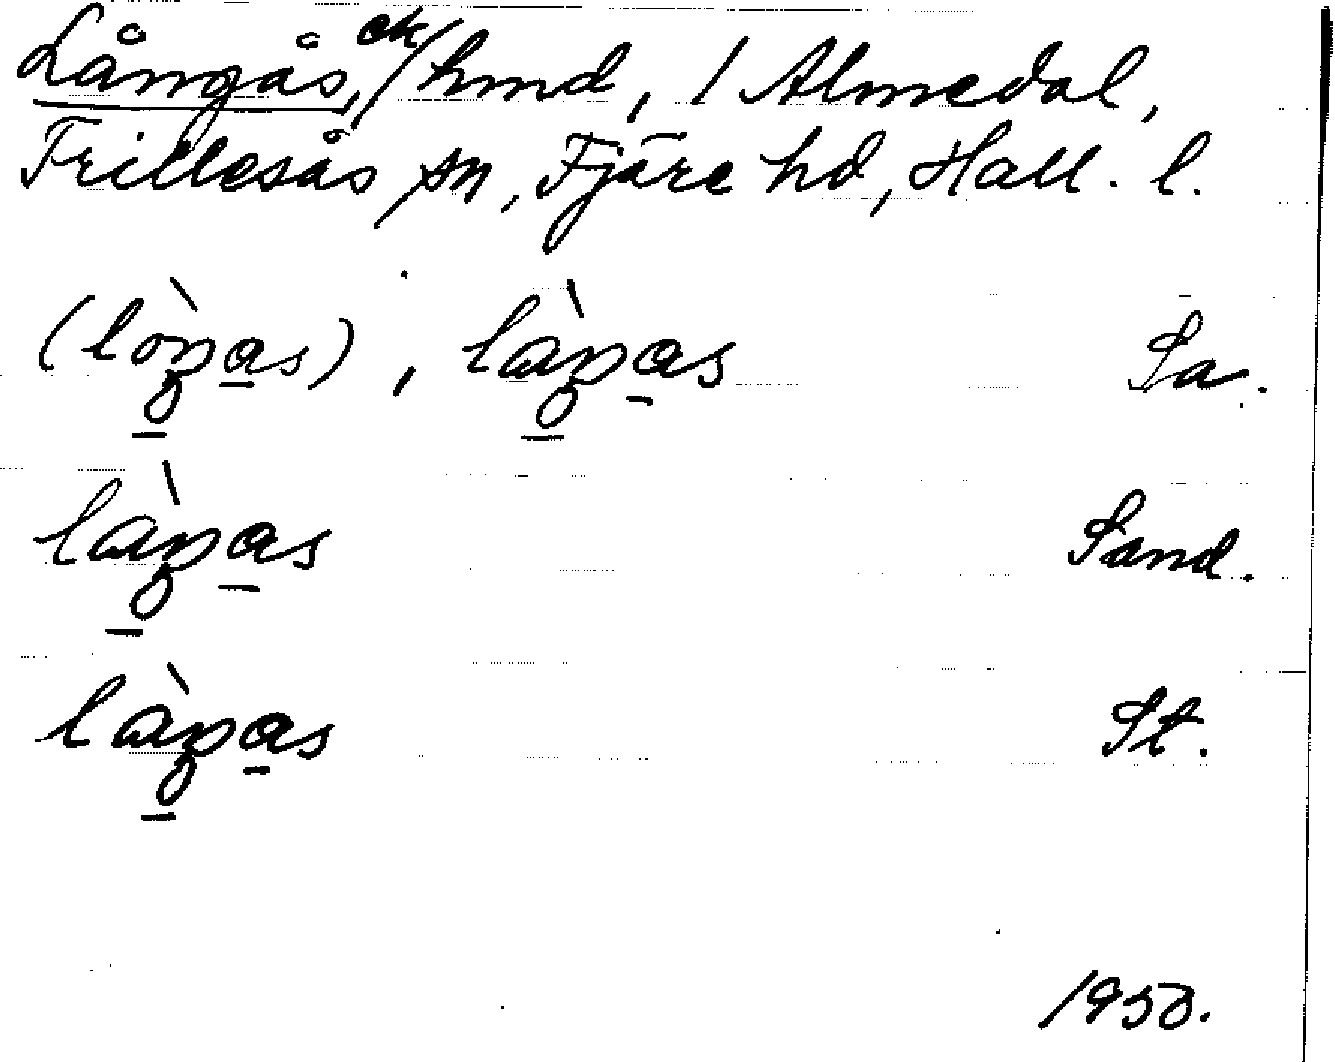 Långås, ek/hmd, 1 Almedal,
Frillesås sn, Fjäre hd, Hall. l.
(lòŋas), làŋas Sa.
làŋas Sand.
làŋas St.
1950.